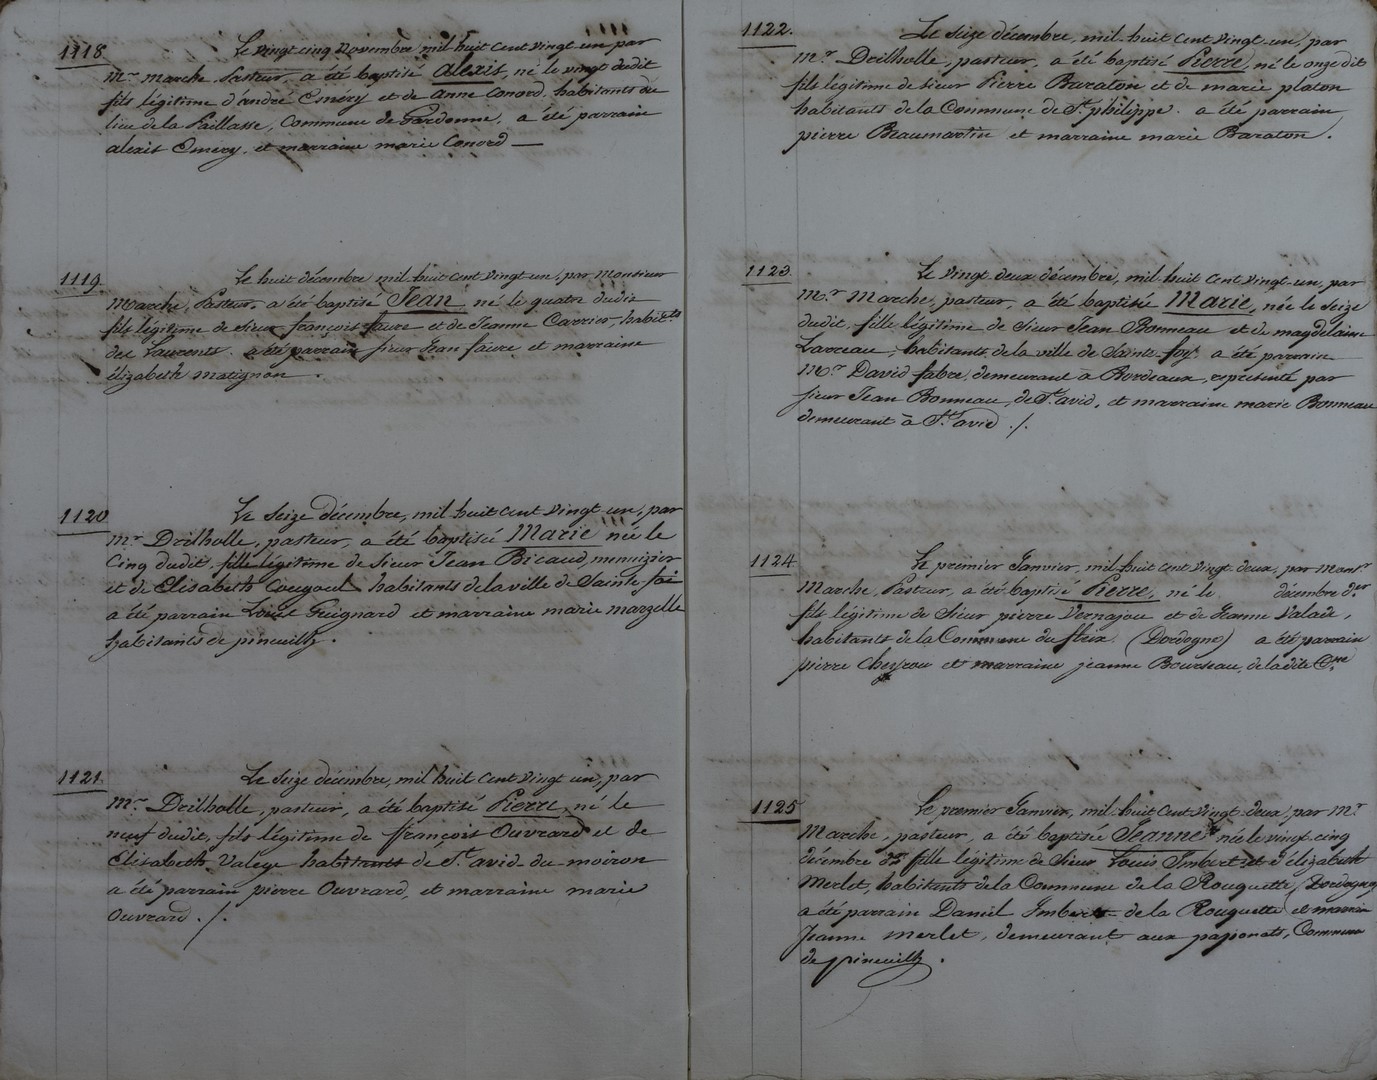 1118.
Le vingt cinq Novembre mil huit cent vingt un par
Mr. Marche Pasteur, a été baptisé Alexis, né le vingt dudit
fils légitime d'andré Eméry et de Anne Conord, habitants au
lieu de la Paillasse, Commune de Gardonne, a été parrain
alexis Eméry, et marraine marie Conord —
1119.
Le huit décembre mil huit cent vingt un, par Monsieur
Marche, Pasteur, a été baptisé Jean né le quatre dudit
fils légitime de sieur françois faure et de Jeanne Carrier, habitts
des Laurents. a été parrain sieur Jean faure et marraine
élizabeth matignon.
1120
Le Seize décembre, mil huit cent vingt un, par
Mr. Drilholle, pasteur, a été baptisé Marie née le
Cinq dudit, fille légitime de Sieur Jean Bicaud, menuizier
et de Elisabeth habitants de la ville de Sainte foi
a été parrain Louis Guignard et marraine marie marzelle
habitants de pineuilh.
1121.
Le Seize décembre, mil huit cent vingt un, par
Mr. Drilholle, pasteur, a été baptisé Pierre, né le
neuf dudit, fils légitime de françois Ouvrard et de
Elisabeth Valège habitants de St. avid du moiron
a été parrain pierre Ouvrard, et marraine marie
Ouvrard ./.
1122.
Le Seize décembre, mil huit cent vingt un, par
Mr. Drilholle, pasteur, a été baptisé Pierre, né le onze dit
fils légitime de sieur Pierre Baraton et de marie platon
habitants de la Commune de St. philippe. a été parrain
pierre Beaumartin et marraine marie Baraton.
1123.
Le vingt deux décembre, mil huit cent vingt un, par
Mr. Marche, pasteur, a été baptisée Marie, née le Seize
dudit, fille légitime de Sieur Jean Bonneau et de magdelaine
Larreau, habitants de la ville de Sainte-foy. a été parrain
Mr. David fabre, demeurant à Bordeaux, représenté par
Sieur Jean Bonneau, de St. avid, et marraine marie Bonneau
demeurant à St. avid ./.
1124
Le premier Janvier, mil huit cent vingt deux, par Monsr.
Marche, Pasteur, a été baptisé Pierre, né le décembre der
fils légitime de Sieur pierre Vernajou et de Jeanne Valade,
habitants de la Commune du fleix. (Dordogne) a été parrain
pierre Cheyrou et marraine jeanne Bourseau, de ladite Cne
1125
Le premier Janvier, mil huit cent vingt deux, par Mr.
Marche, pasteur, a été baptisée Jeanne née le vingt cinq
décembre der fille légitime de Sieur Louis Imbert et d'élizabeth
Merlet, habitants de la Commune de la Rouquette (Dordogne)
a été parrain Daniel Imbert de la Rouquette et marraine
Jeanne Merlet, demeurant aux, Commune
de pineuilh.